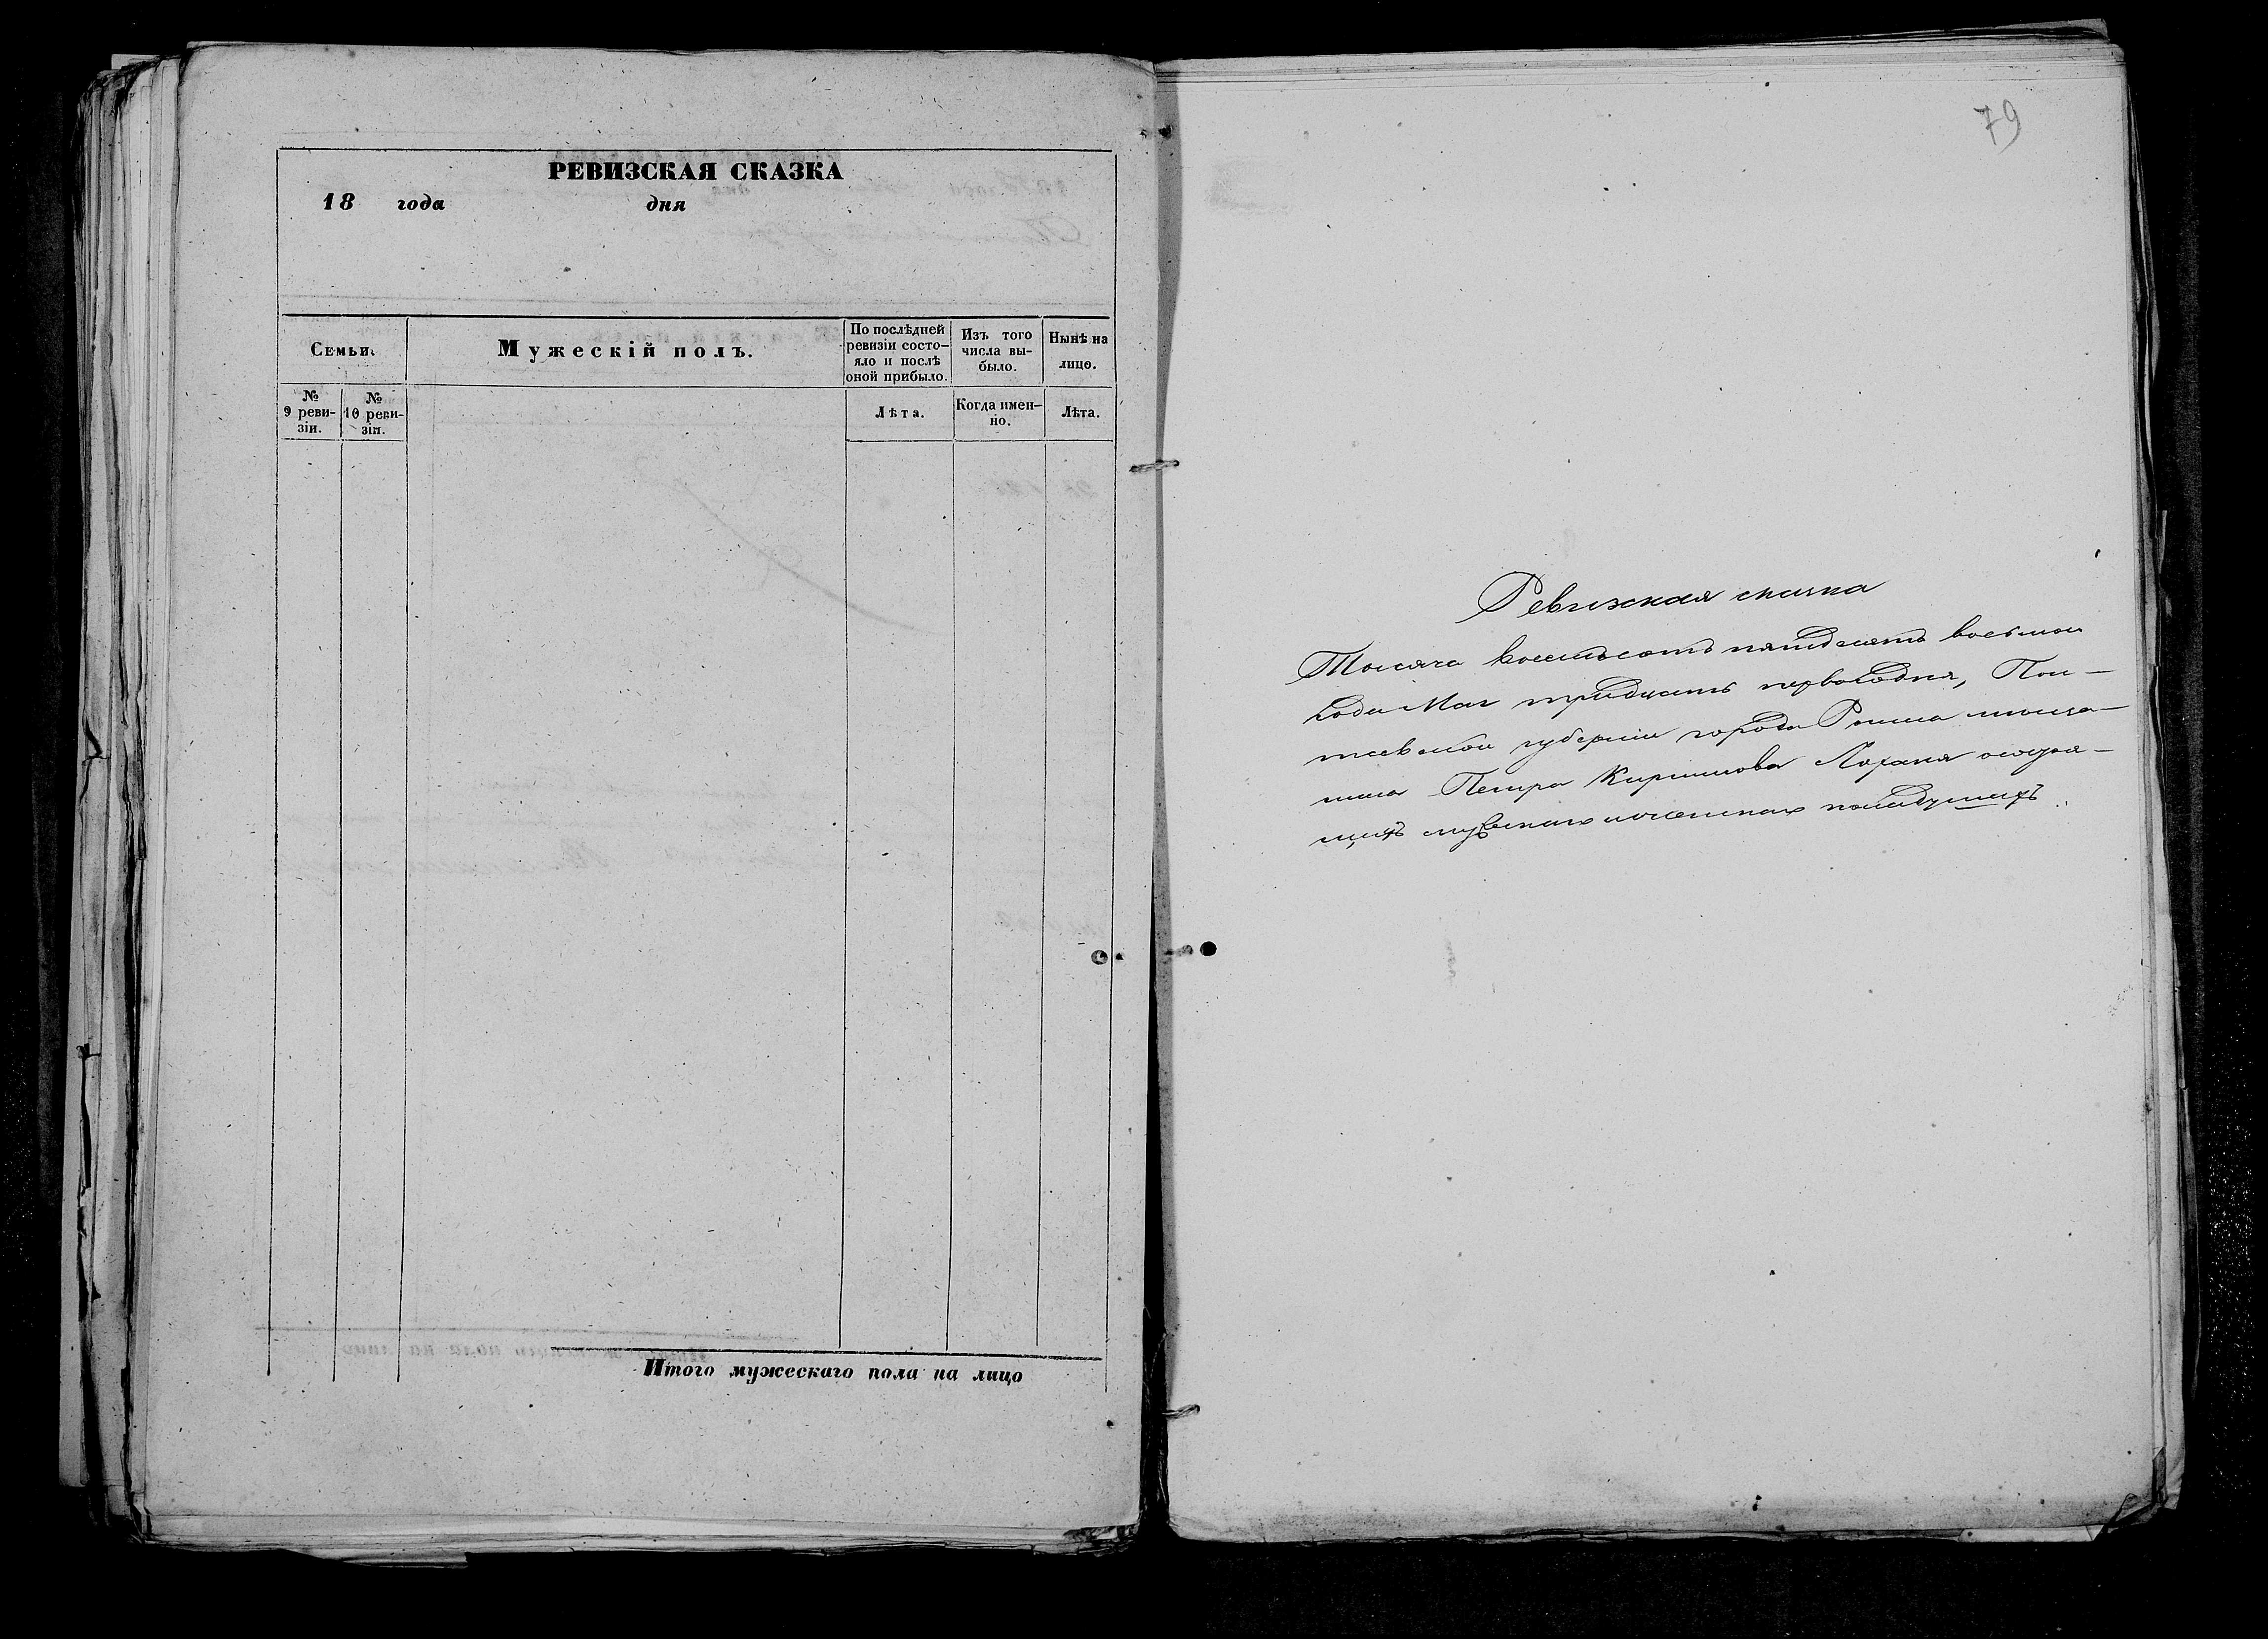 РЕВИЗСКАЯ СКАЗКА
18 года дня
Семьи.
Мужескій полъ.
По послѣдней ревизіи состо-яло и послѣ оной прибыло.
Изъ того числа вы-было.
Нынѣ на лицо.
№ 9 реви-зіи.
№ 10 реви-зіи.
Лѣта.
Когда имен-но.
Лѣта.
Итого мужескаго пола на лицо
79
Ревизская сказка
Тысяча восемьсотъ пятдесятъ восьмои
года Мая тридцать перваго дня, Пол-
тавскои губернии города Ромна мѣща-
нина Петра Кириллова Лоханя
мужеска и женска пола душахъ